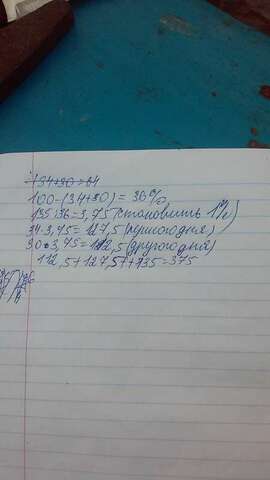 34+30=64
100-(34+30)=36%
135:36=3,75(становить 1%)
34·3,75=127,5(першого дня)
30·3,75=112,5(другого дня)
112,5+127,5+135=375